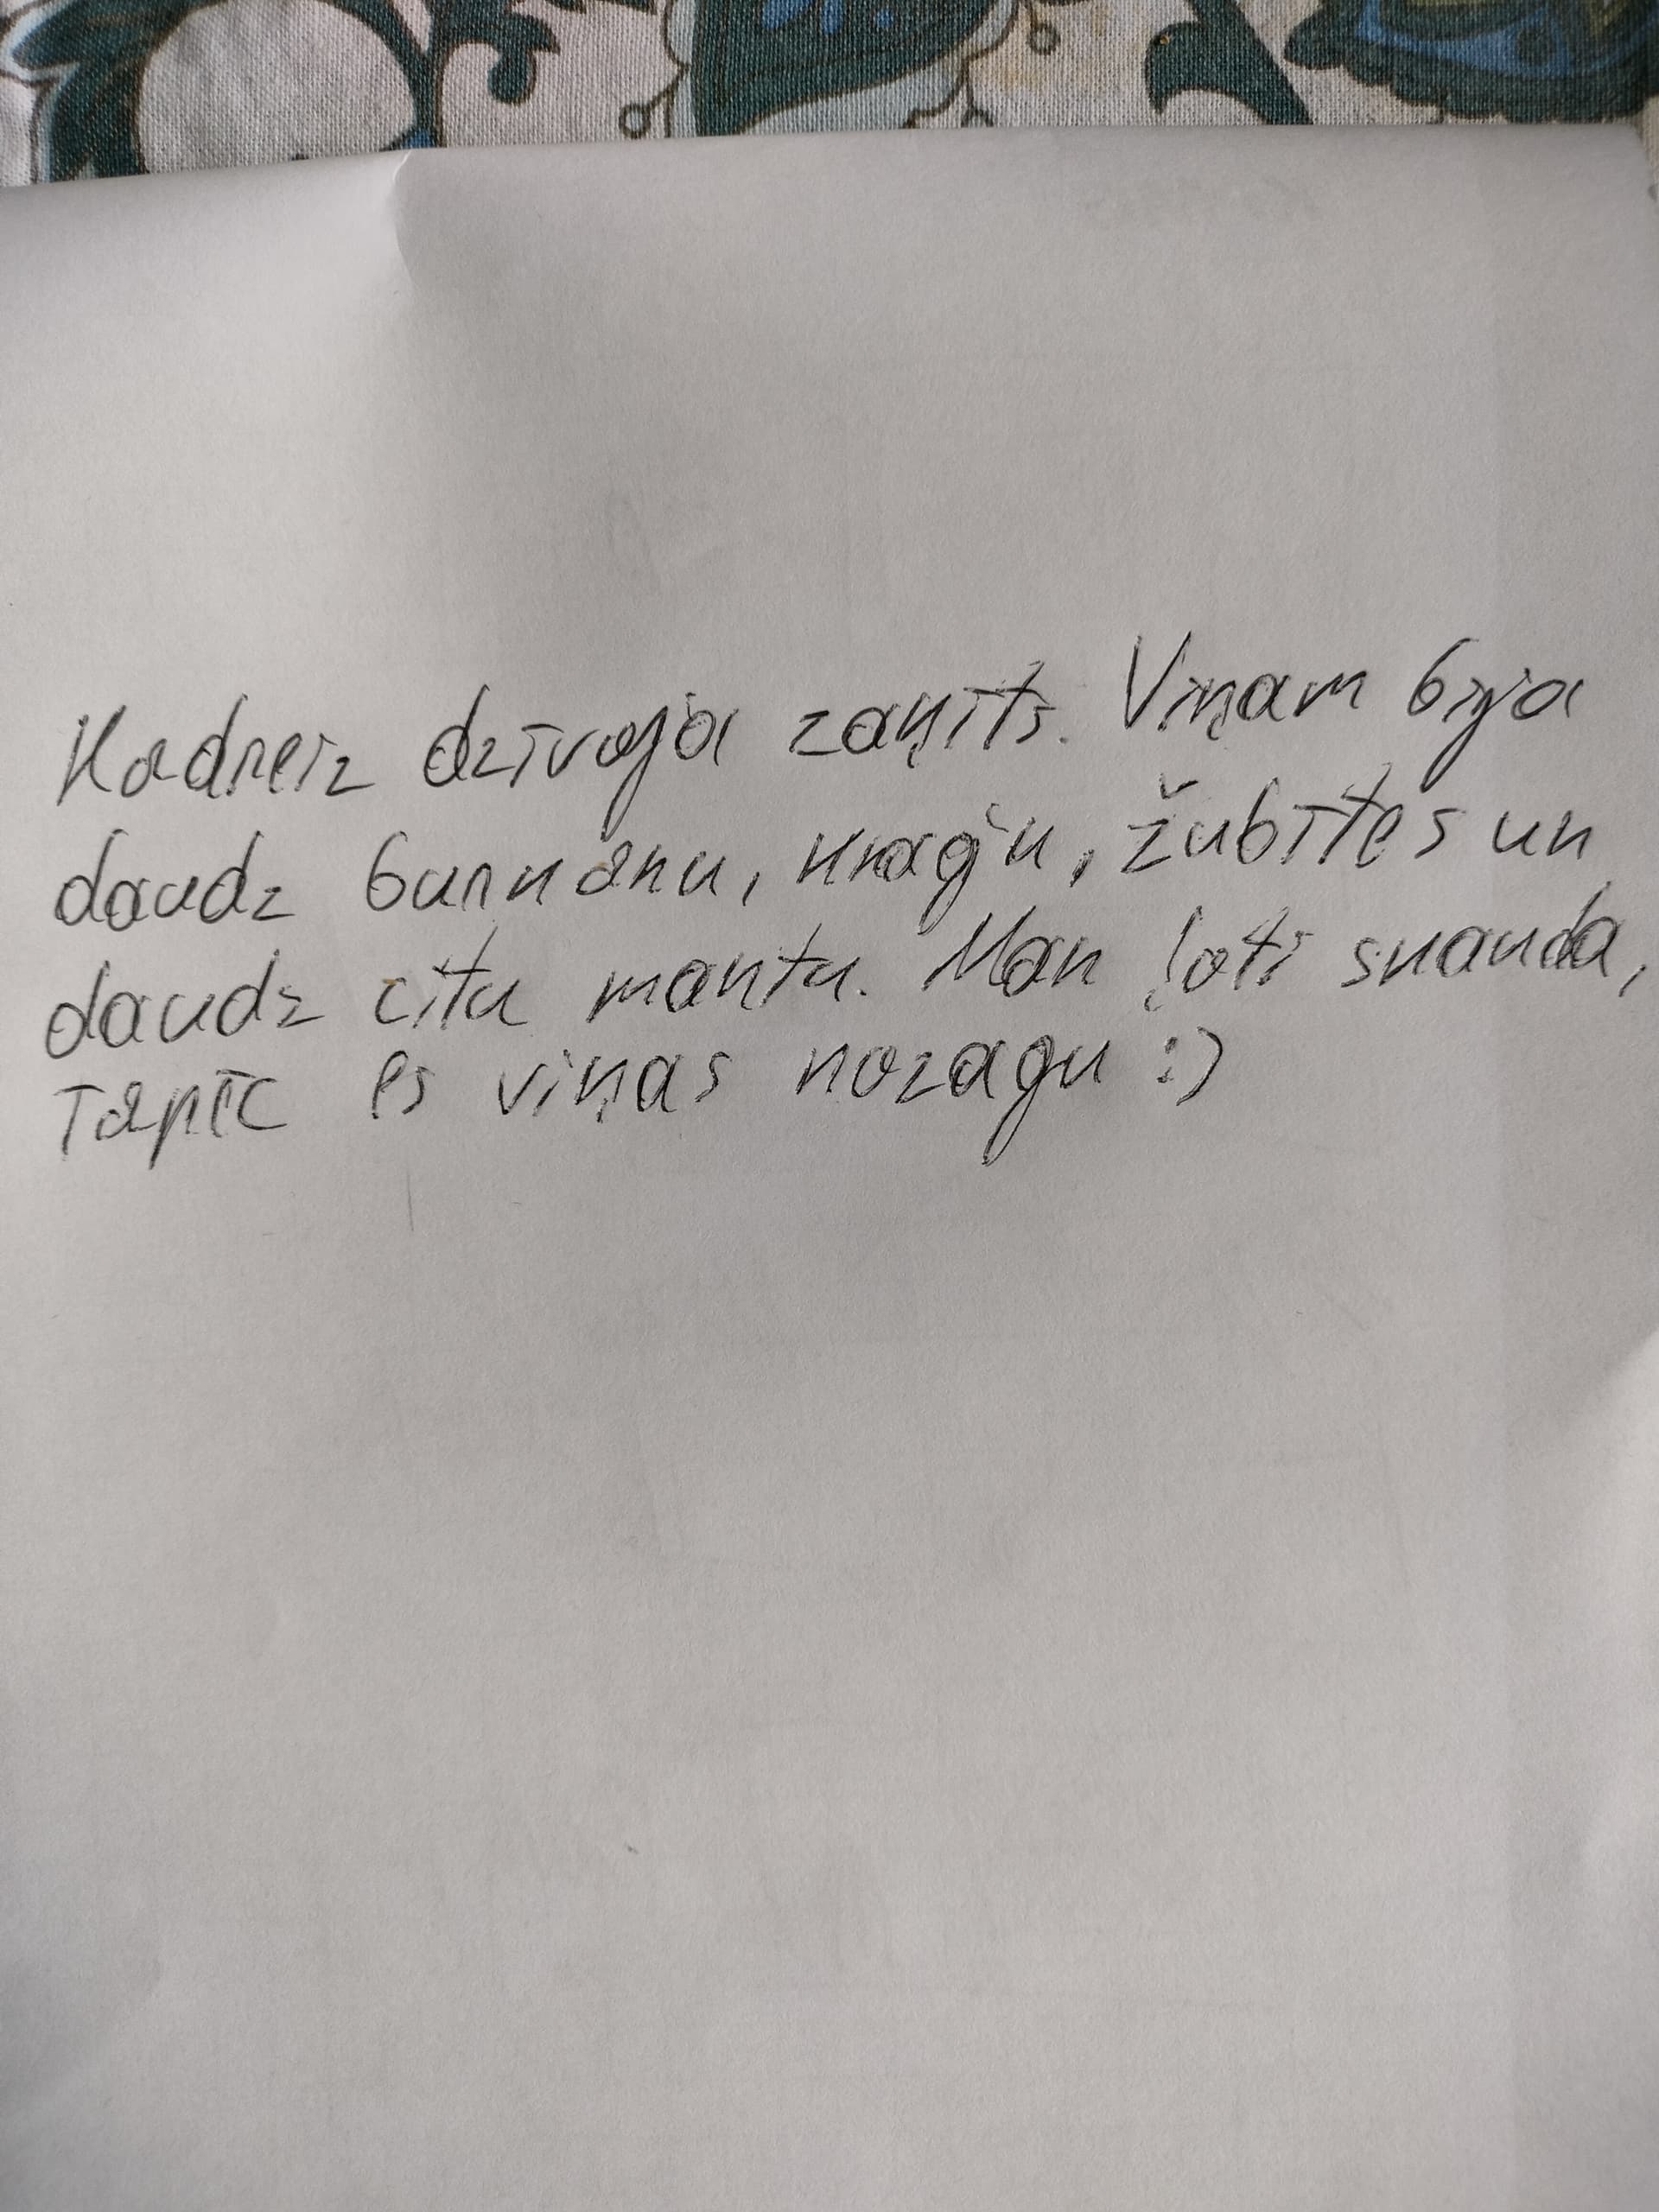 Kadreiz dzīvoja zaķīts. Viņam bija
daudz burkānu, kraģu, žubītes un
daudz citu mantu. Man ļoti skauda,
Tāpēc es viņas nozagu :)